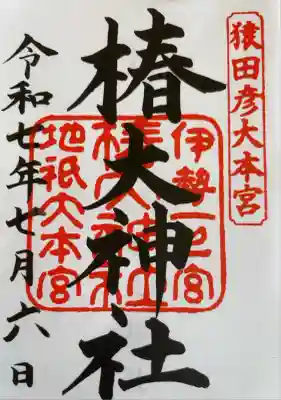 猿田彦大本宮
椿大神社
伊勢一之宮
椿大神社
地祇大本宮
令和七年七月六日